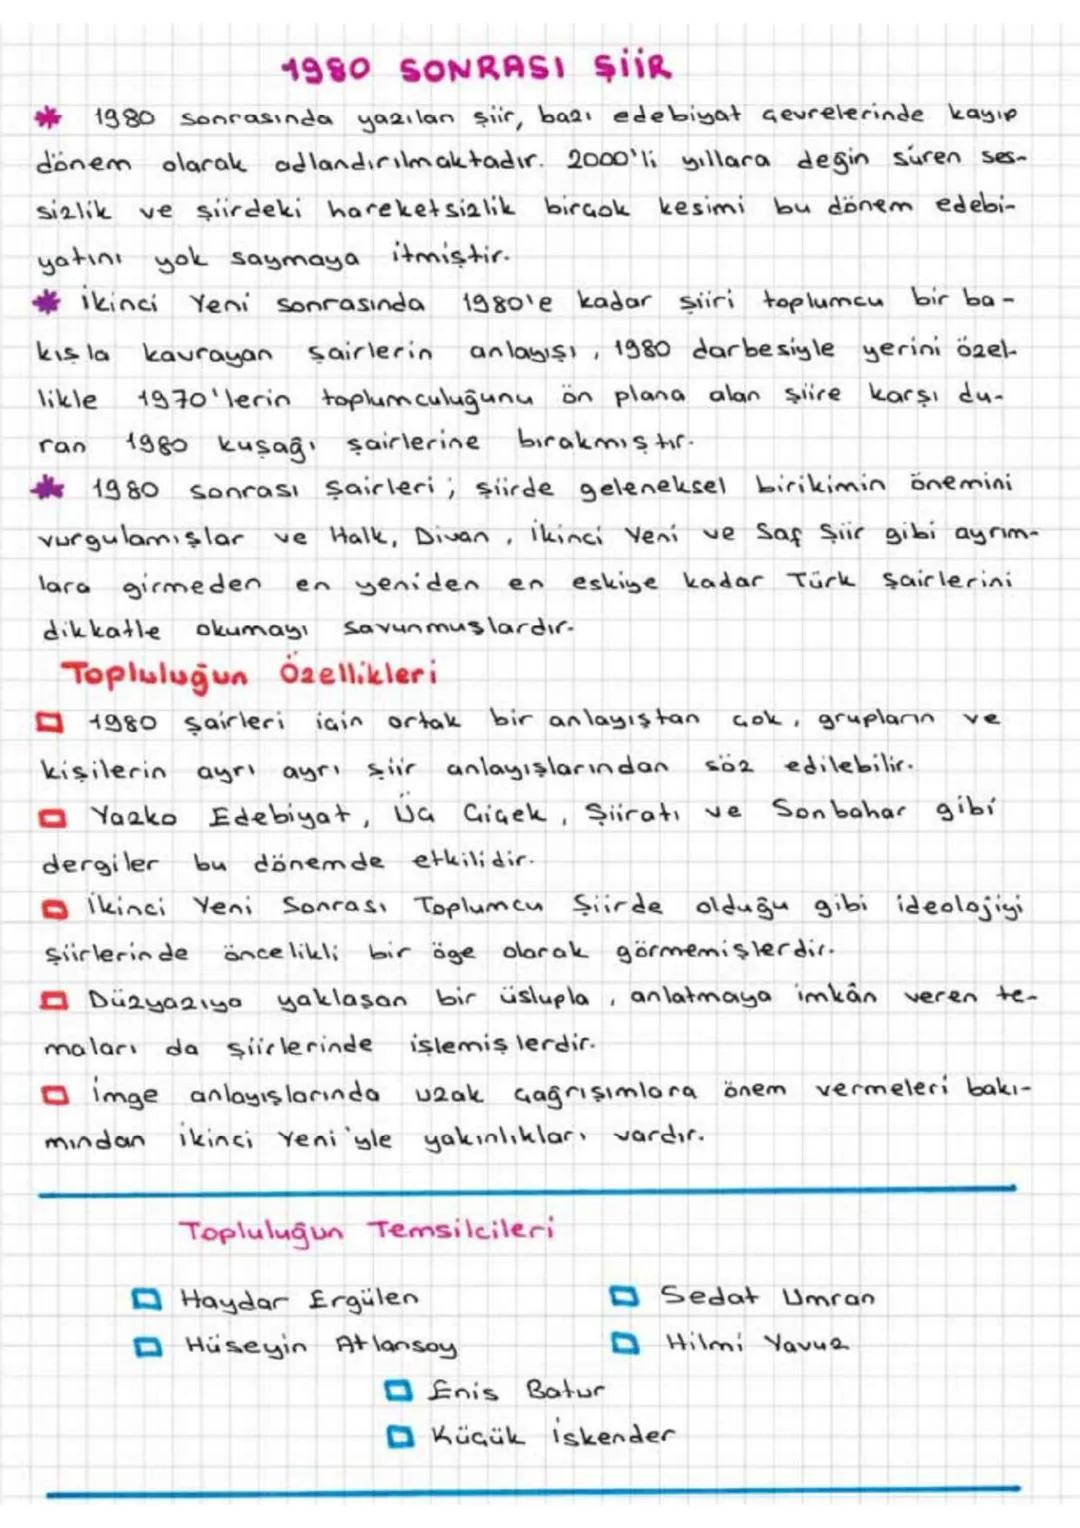 1980 SONRASI ŞİİR
* 1980 sonrasında yazılan şiir, bazı edebiyat çevrelerinde kayıp
dönem olarak adlandırılmaktadır. 2000'li yıllara değin süren ses-
sizlik ve şiirdeki hareketsizlik birçok kesimi bu dönem edebi-
yatını yok saymaya itmiştir.
* İkinci Yeni sonrasında 1980'e kadar şiiri toplumcu bir ba-
kışla kavrayan şairlerin anlayışı, 1980 darbesiyle yerini özel-
likle 1970'lerin toplumculuğunu ön plana alan şiire karşı du-
ran 1980 kuşağı şairlerine bırakmıştır.
* 1980 sonrası şairleri; şiirde geleneksel birikimin önemini
vurgulamışlar ve Halk, Divan, İkinci Yeni ve Saf Şiir gibi ayrım-
lara girmeden en yeniden en eskiye kadar Türk şairlerini
dikkatle okumayı savunmuşlardır.
Topluluğun Özellikleri
1980 şairleri için ortak bir anlayıştan çok, grupların ve
kişilerin ayrı ayrı şiir anlayışlarından söz edilebilir.
Yazko Edebiyat, Üç Çiçek, Şiiratı ve Sonbahar gibi
dergiler bu dönemde etkilidir.
İkinci Yeni Sonrası Toplumcu Şiirde olduğu gibi ideolojiyi
şiirlerinde öncelikli bir öge olarak görmemişlerdir.
Düzyazıya yaklaşan bir üslupla, anlatmaya imkân veren te-
maları da şiirlerinde işlemişlerdir.
İmge anlayışlarında uzak çağrışımlara önem vermeleri bakı-
mından İkinci Yeni'yle yakınlıkları vardır.
Topluluğun Temsilcileri
Haydar Ergülen
Sedat Umran
Hüseyin Atlansoy
Hilmi Yavuz
Enis Batur
Küçük İskender